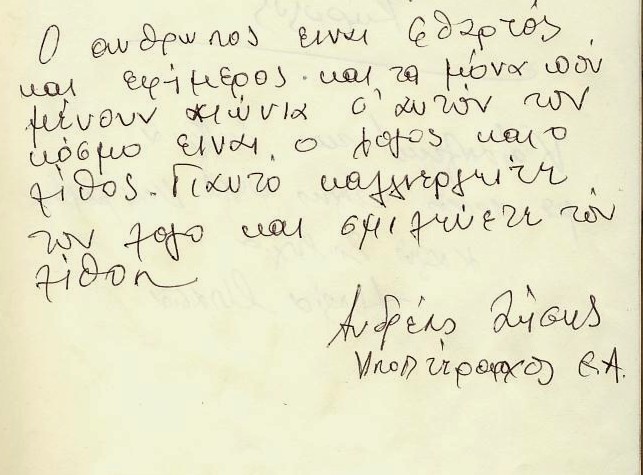 Ο ανθρωπος ειναι φθαρτός
και εφήμερος. και τα μόνα πού
μένουν αιώνια σ' αυτόν τον
κόσμο ειναι, ο λογος και ο
λιθος. Γιαυτο καλλιεργειτε
τον λογο και σμιλεύετε τόν
λιθον
Ανδρέας Ζήσης
Υποπτέραρχος Ε.Α.